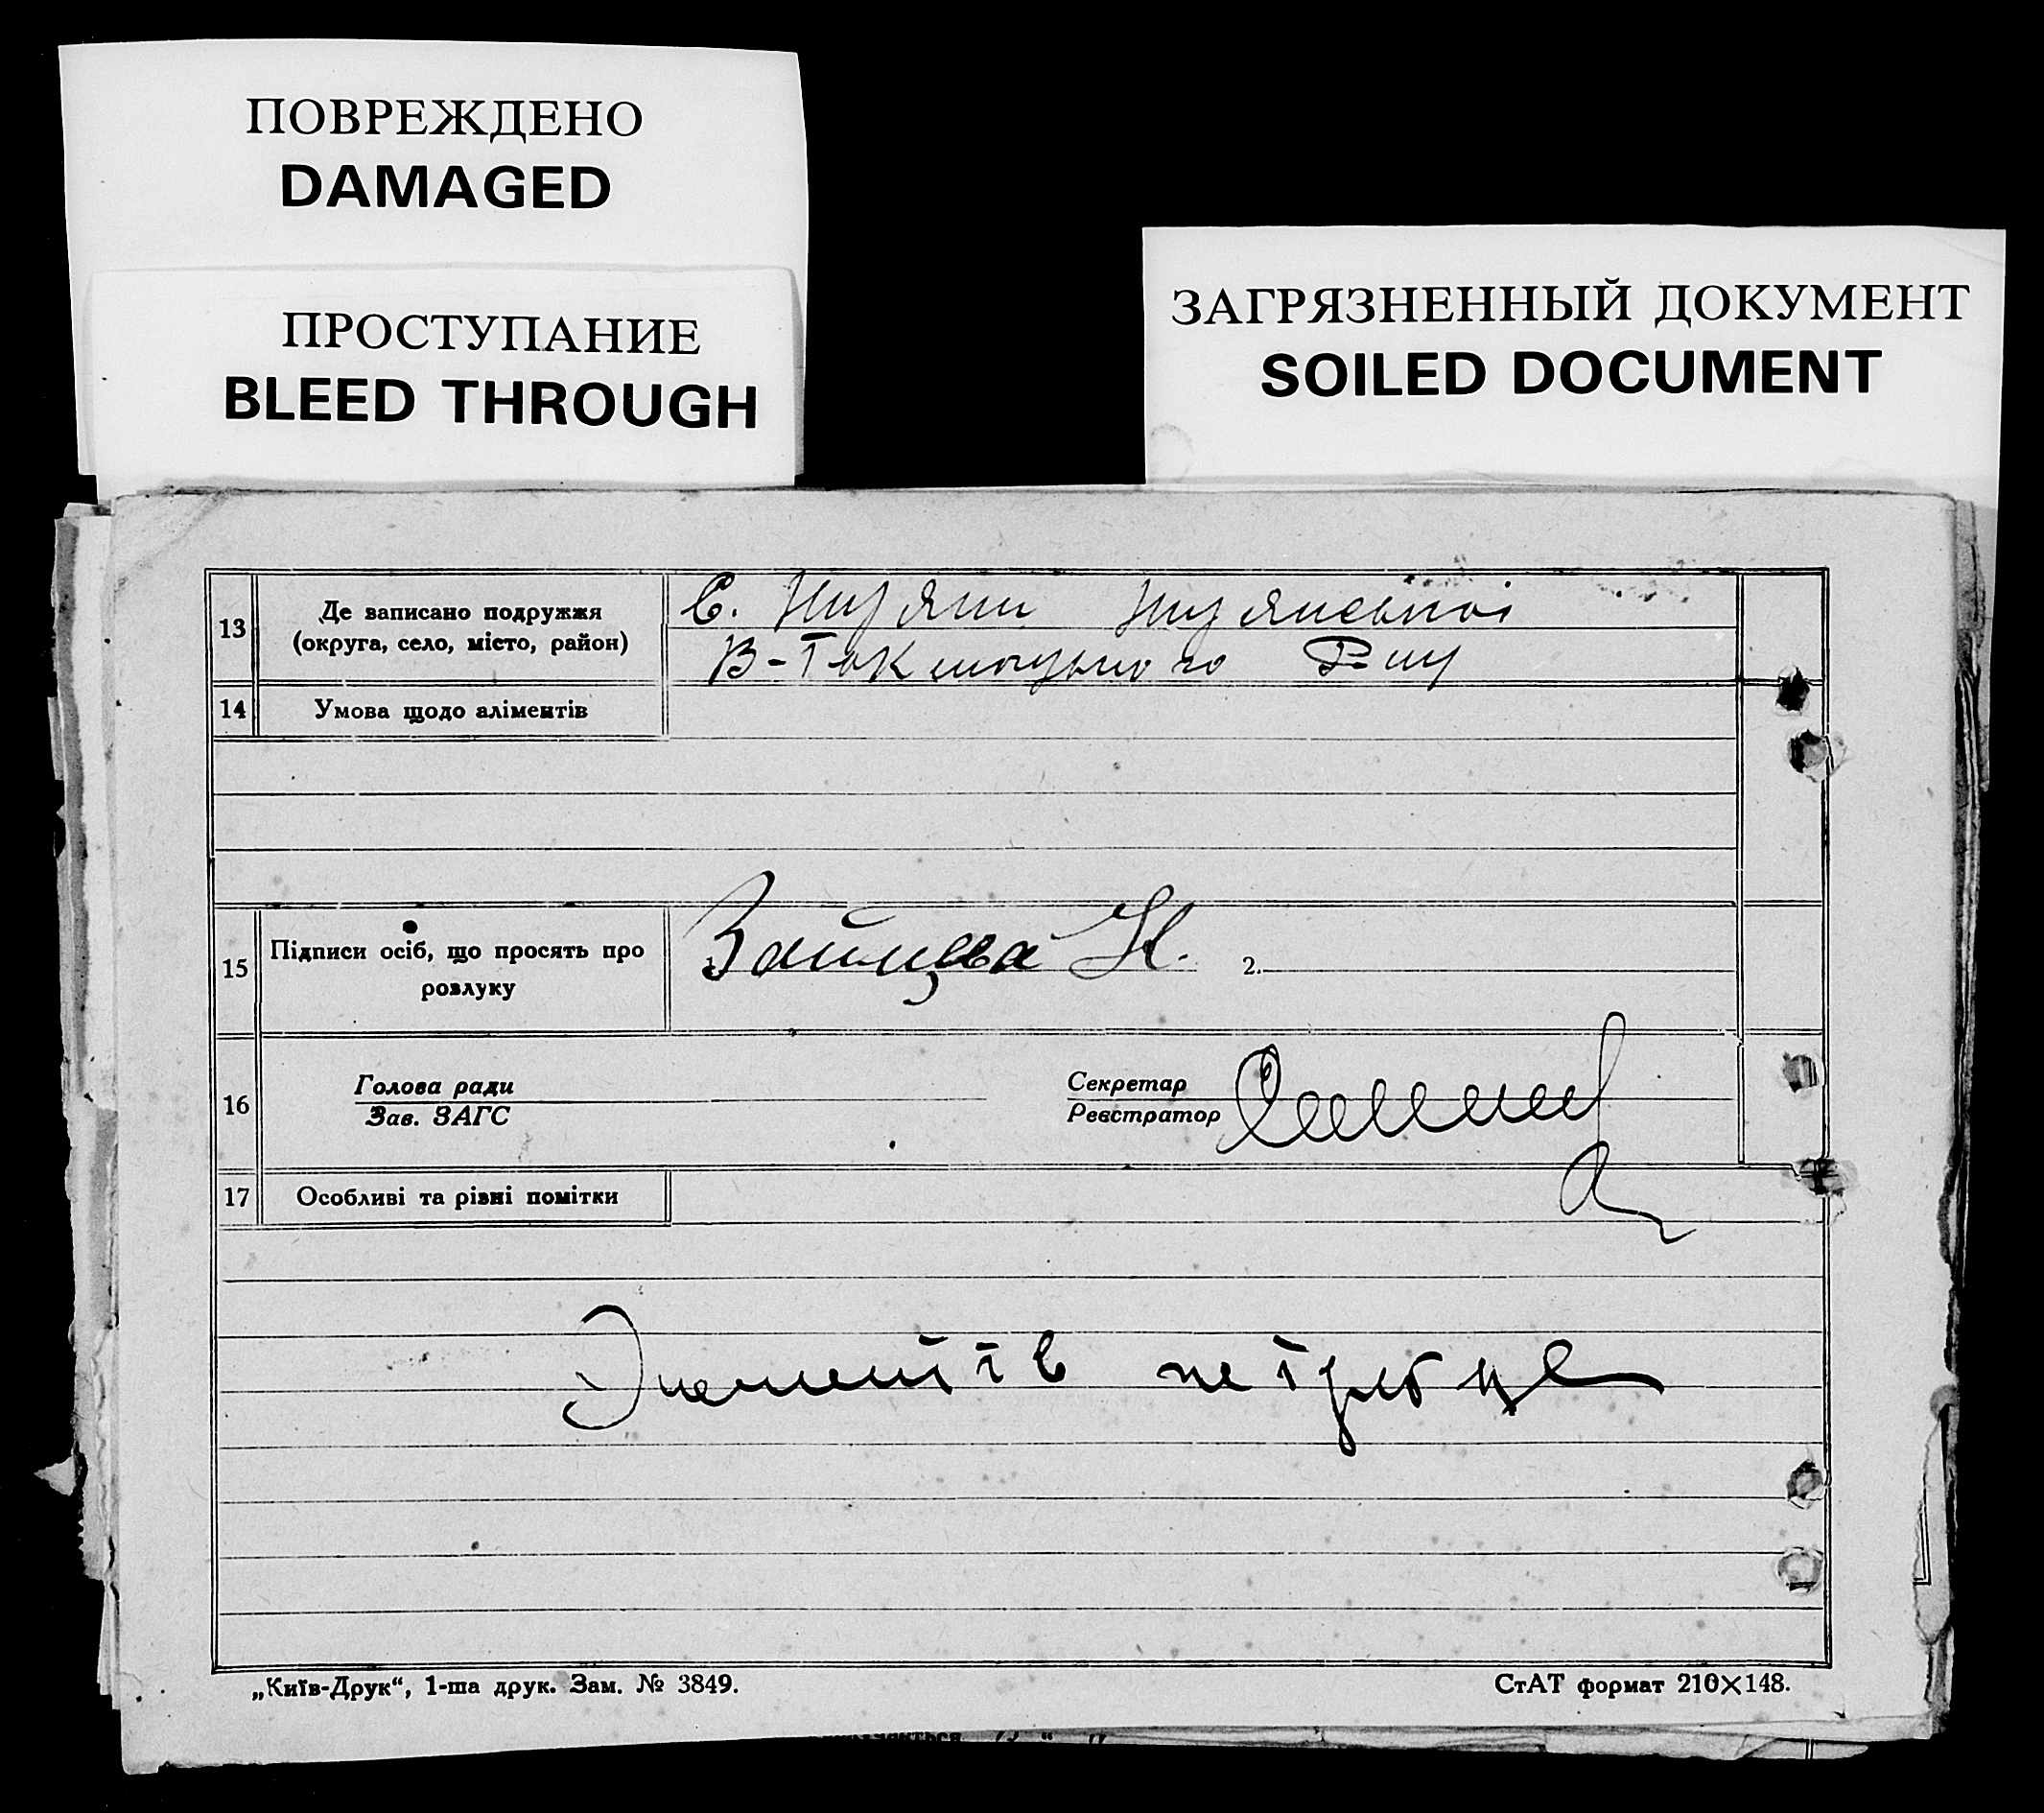 ПОВРЕЖДЕНО
DAMAGED
ПРОСТУПАНИЕ
BLEED THROUGH
ЗАГРЯЗНЕННЫЙ ДОКУМЕНТ
SOILED DOCUMENT
13 Де записано подружжя
(округа, село, місто, район)
С.
В-Токмацького Р-ну
14 Умова щодо аліментів
15 Підписи осіб, що просять про
розлуку
Зайцева Н. 2.
16 Голова ради
Зав. ЗАГС
Секретар
Реєстратор
17 Особливі та різні помітки
„Київ-Друк“, 1-ша друк. Зам. № 3849.
СтАТ формат 210×148.